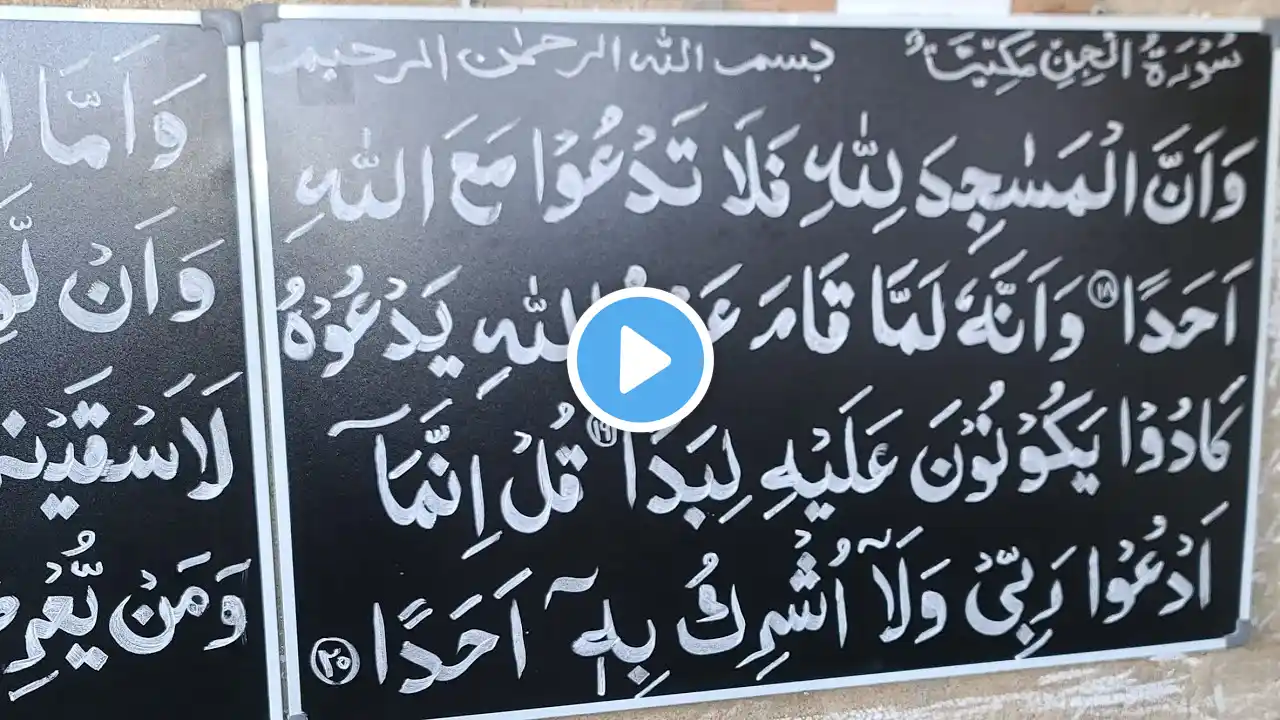 سُوْرَةُ الْجِنِّ مَكِّيَّةٌ بسم الله الرحمٰن الرحيم
وَاَنَّ الْمَسٰجِدَ لِلّٰهِ فَلَا تَدْعُوْا مَعَ اللّٰهِ
اَحَدًا ۱۸ وَاَنَّهٗ لَمَّا قَامَ اللّٰهِ يَدْعُوْهُ
كَادُوْا يَكُوْنُوْنَ عَلَيْهِ لِبَدًا ۱۹ قُلْ اِنَّمَآ
اَدْعُوْا رَبِّيْ وَلَآ اُشْرِكُ بِهٖٓ اَحَدًا ۲۰
وَاَمَّا
وَاَنْ
لَاَسْقَيْنٰ
وَمَنْ يُّعْرِ